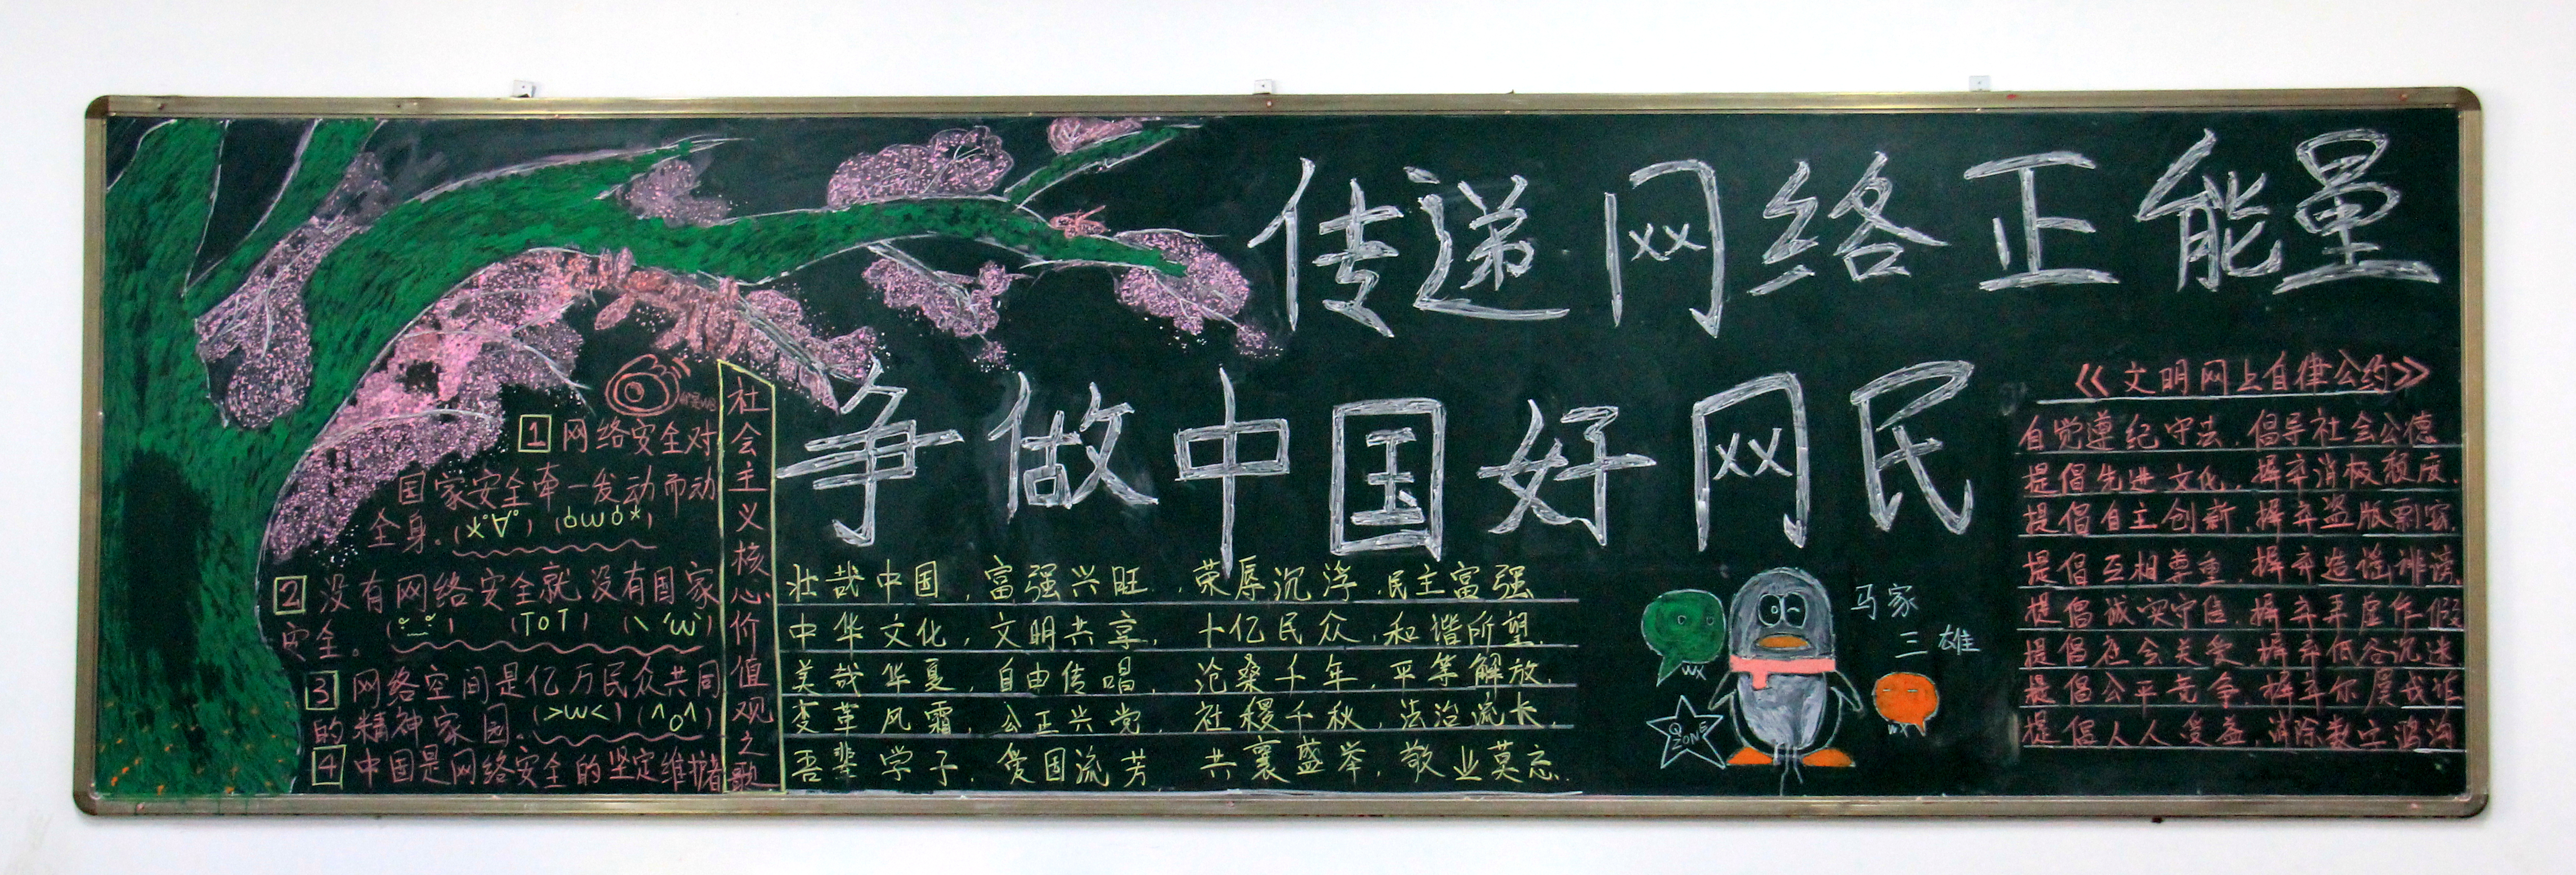 传递网络正能量
争做中国好网民
1 网络安全对
国家安全牵一发动而动
全身。(*°∀°) (ὁωὸ*)
2 没有网络安全就没有国家
安全。 (TOT)
3 网络空间是亿万民众共同
的精神家园。(>w<) (^o^)
4 中国是网络安全的坚定维护者
社会主义核心价值观之歌
壮哉中国,富强兴旺.荣辱沉浮.民主富强
中华文化,文明共享,十亿民众,和谐所望.
美哉华夏,自由传唱,沧桑千年,平等解放.
变革风霜,公正兴党,社稷千秋,法治流长.
吾辈学子,爱国流芳 共襄盛举,敬业莫忘.
马家
三雄
WX
Q
ZONE
WX
《文明网上自律公约》
自觉遵纪守法.倡导社会公德
提倡先进文化.摒弃消极颓废.
提倡自主创新.摒弃盗版剽窃.
提倡互相尊重.摒弃造谣诽谤.
提倡诚实守信.摒弃弄虚作假
提倡社会关爱.摒弃低俗沉迷
提倡公平竞争.摒弃尔虞我诈
提倡人人受益.消除数字鸿沟